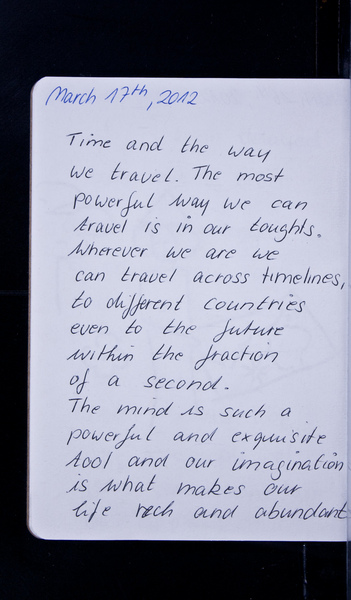 March 17th, 2012
Time and the way
we travel. The most
powerful way we can
travel is in our toughts.
Wherever we are we
can travel across timelines,
to different countries
even to the future
within the fraction
of a second.
The mind is such a
powerful and exquisite
tool and our imagination
is what makes our
life rich and abundant